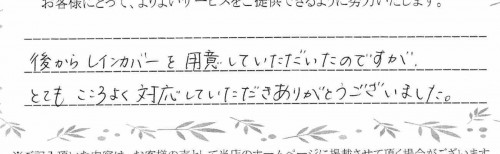 お客様にとって、よりよいサービスをご提供できるように努力いたします。
後からレインカバーを用意していただいたのですが、
とても こころよく対応していただきありがとうございました。
※ご記入頂いた内容は、お客様の声として当店のホームページに掲載させて頂く場合がございます